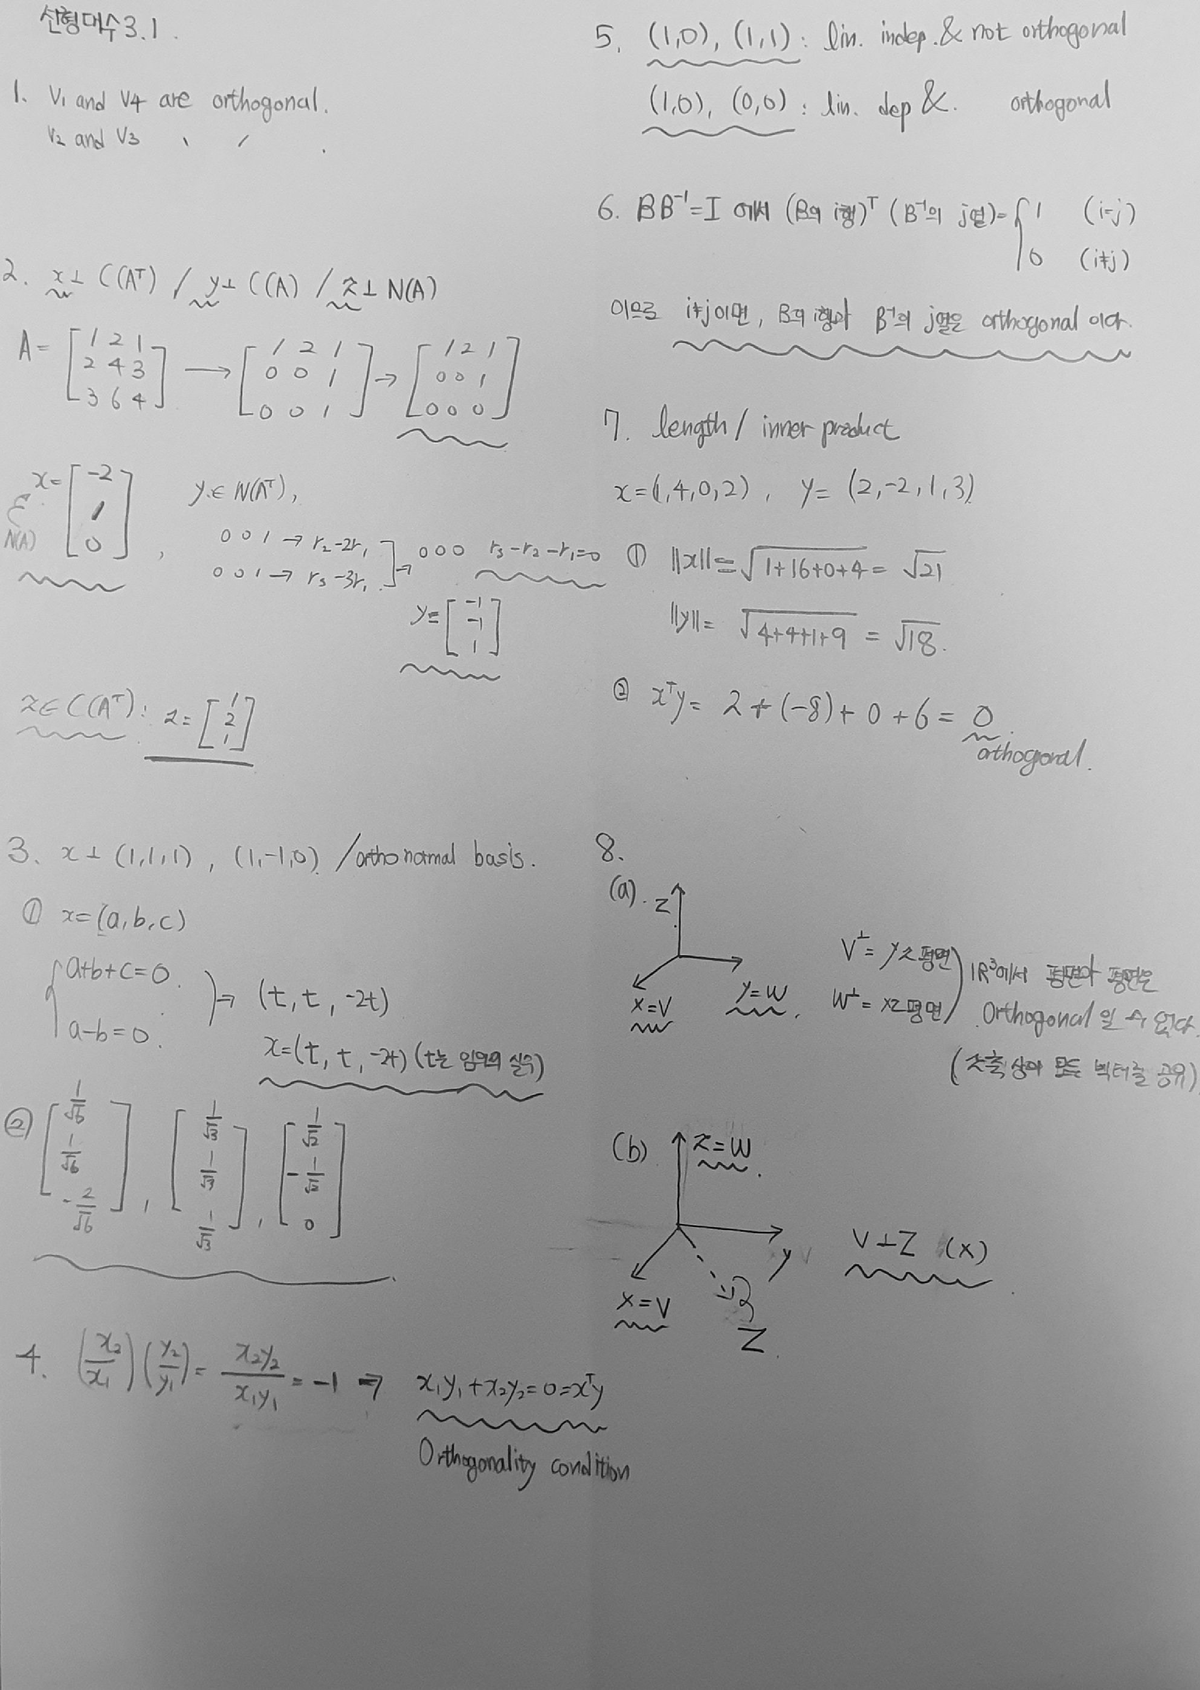 선형대수 3.1.
1. V₁ and V₄ are orthogonal.
V₂ and V₃ 〃 .
2. x⊥ C(Aᵀ) / y⊥ C(A) / z⊥ N(A)
A = [1 2 1; 2 4 3; 3 6 4] → [1 2 1; 0 0 1; 0 0 1] → [1 2 1; 0 0 1; 0 0 0]
x = [-2; 1; 0] ∈ N(A),
y ∈ N(Aᵀ),
0 0 1 → r₂-2r₁
0 0 1 → r₃-3r₁
→ 0 0 0 r₃-r₂-r₁=0
y = [-1; -1; 1]
z ∈ C(Aᵀ) : z = [1; 2; 1]
3. x ⊥ (1,1,1), (1,-1,0) / orthonormal basis.
① x = (a, b, c)
a+b+c=0.
a-b=0.
→ (t, t, -2t)
x=(t, t, -2t) (t는 임의의 실수)
② [1/√6; 1/√6; -2/√6], [1/√3; 1/√3; 1/√3], [1/√2; -1/√2; 0]
4. (x₂/x₁)(y₂/y₁) = x₂y₂/x₁y₁ = -1 ⇒ x₁y₁+x₂y₂=0=xᵀy
Orthogonality condition
5. (1,0), (1,1) : lin. indep. & not orthogonal
(1,0), (0,0) : lin. dep &. orthogonal
6. BB⁻¹=I 에서 (B의 i행)ᵀ (B⁻¹의 j열)= { 1 (i=j)
0 (i≠j)
이므로 i≠j이면, B의 i행과 B⁻¹의 j열은 orthogonal 이다.
7. length / inner product
x=(1,4,0,2), y= (2,-2,1,3)
① ||x|| = √(1+16+0+4) = √21
||y|| = √(4+4+1+9) = √18.
② xᵀy = 2+(-8)+0+6 = 0.
orthogonal.
8.
(a).
Z
x=V
y=W.
V⊥= yz평면
W⊥= xz평면
ℝ³에서 평면과 평면은
Orthogonal 일 수 없다.
(z축 상의 모든 벡터를 공유)
(b)
z=W.
y
x=V
Z.
V⊥Z (X)